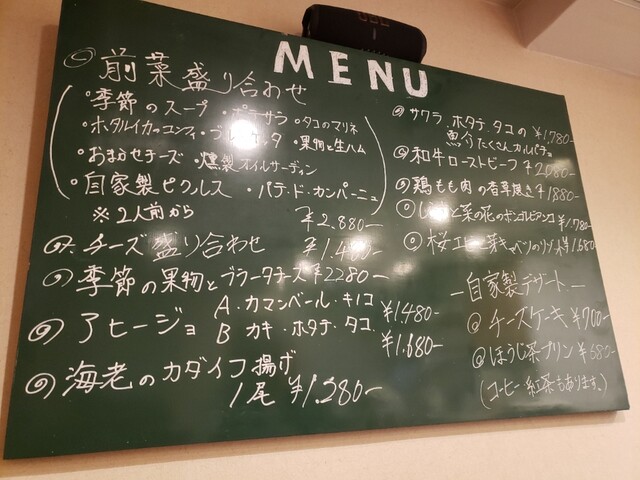 MENU
前菜盛り合わせ
・季節のスープ ・ポテサラ ・タコのマリネ
・ホタルイカのコンフィ ・ブルスケッタ ・果物と生ハム
・おまかせチーズ ・燻製オイルサーディン
・自家製ピクルス ・パテ・ド・カンパーニュ
※2人前から ¥2.880-
チーズ盛り合わせ ¥1.480-
季節の果物とブラータチーズ ¥2280-
アヒージョ A.カマンベール・キノコ ¥1480-
B カキ・ホタテ・タコ ¥1.680-
海老のカダイフ揚げ
1尾 ¥1.280-
サワラ.ホタテ.タコの ¥1,780-
魚介たくさんカルパッチョ
和牛ローストビーフ ¥2080-
鶏もも肉の香草焼き ¥1880-
と菜の花のボンゴレビアンコ ¥1.780-
桜エビと芽キャベツのリゾット ¥1.680-
―自家製デザート―
チーズケーキ ¥700-
ほうじ茶プリン ¥680-
(コーヒー紅茶もあります。)